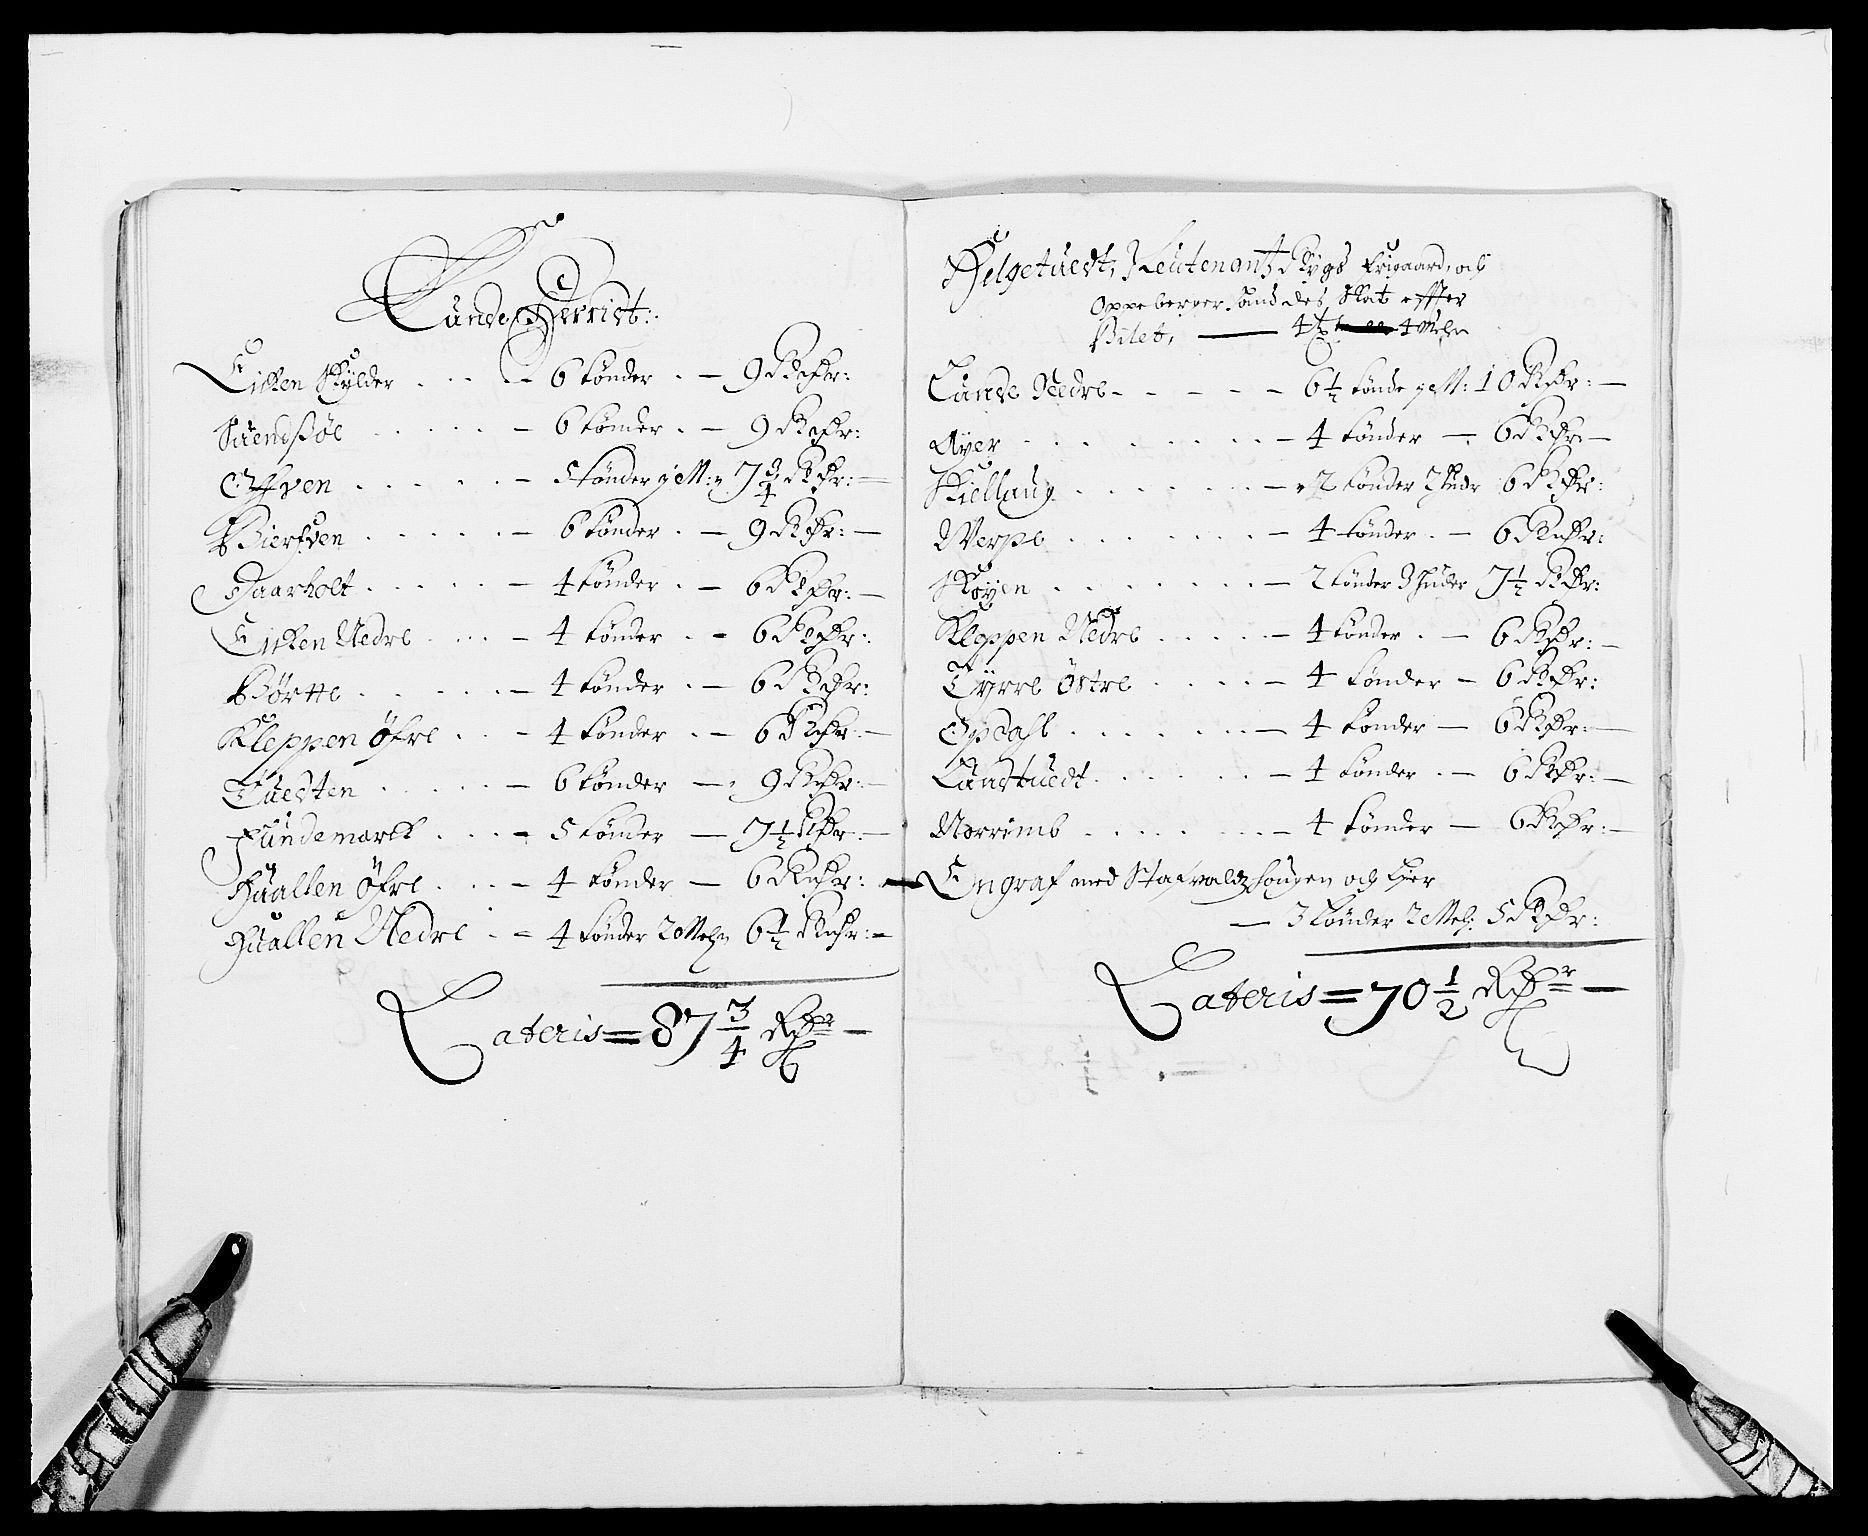 Lunde Distrikt:
Eicken Skylder - 6 tønder - 9 Rixdr:
Suendsøe - 6 tønder - 9 Rixdr:
Ofven - 5 tønder 1 ett: 7 3/4 Rdr: -
Bierfven - 6 tønder - 9 Rdr: -
Daarholt - 4 tønder - 6 Rdr: -
Eicken Nedre - 4 tønder - 6 Rdr:
Børtte - 4 tønder - 6 Rdr:
Kleppen Øfre - 4 tønder - 6 Rdr: -
Tuedten - 6 tønder - 9 Rdr: -
Fundemarck - 5 tønder - 7 1/2 Rdr: -
Huallen Øfre - 4 tønder - 6 Rdr: -
Huallen Nedre - 4 tønder 2 Mehr 6 1/2 Rdr: -
Lateris = 87 3/4 Rdr -
Helgetuedt, Leutenant Rygs frigaard, och
Oppebærger hand des Skat effter
Bilet, - 4 t 4 Mehr
Lunde Nedre - 6 1/2 tønde 1 ett: 10 Rdr: -
Ayer - 4 tønder - 6 Rdr: -
Kiellaug - 2 tønder 2 hudr 6 Rdr:
Werpe - 4 tønder - 6 Rdr:
Skøyen - 2 tønder 3 huder 7 1/2 Rdr:
Kleppen Nedre - 4 tønder - 6 Rdr: -
Tyrre Østre - 4 tønder - 6 Rdr:
Opdahl - 4 tønder - 6 Rdr: -
Laastuedt - 4 tønder - 6 Rdr: -
Norrimb - 4 tønder - 6 Rdr: -
Engraf med Stafvaldz hougen och Lier
- 3 tønder 2 Meh: 5 Rdr:
Lateris = 70 1/2 Rdr -